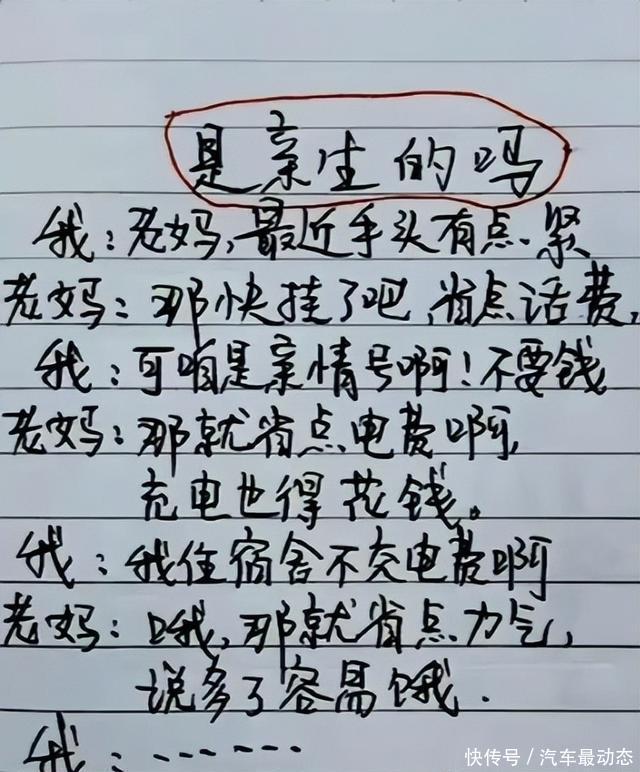 是亲生的吗
我:老妈,最近手头有点紧
老妈:那快挂了吧,省点话费,
我:可咱是亲情号啊!不要钱
老妈:那就省点电费啊,
充电也得花钱。
我:我住宿舍不交电费啊
老妈:哦,那就省点力气,
说多了容易饿.
我:·······
快传号/汽车最动态